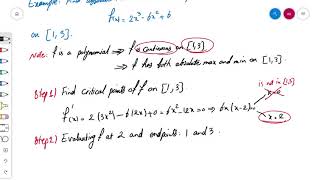 Example: Find absolute
f(x) = 2x³ - 6x² + 6
on [1, 3].
Note: f is a polynomial ⇒ f is continuous on [1,3]
⇒ f has both absolute max and min on [1,3].
Step 1) Find critical points of f on [1,3].
is not in [1,3]
f'(x) = 2(3x²) - 6(2x) + 0 = 6x² - 12x = 0 ⇒ 6x(x-2)=0
x=0
x=2
Step 2) Evaluating f at 2 and endpoints: 1 and 3.